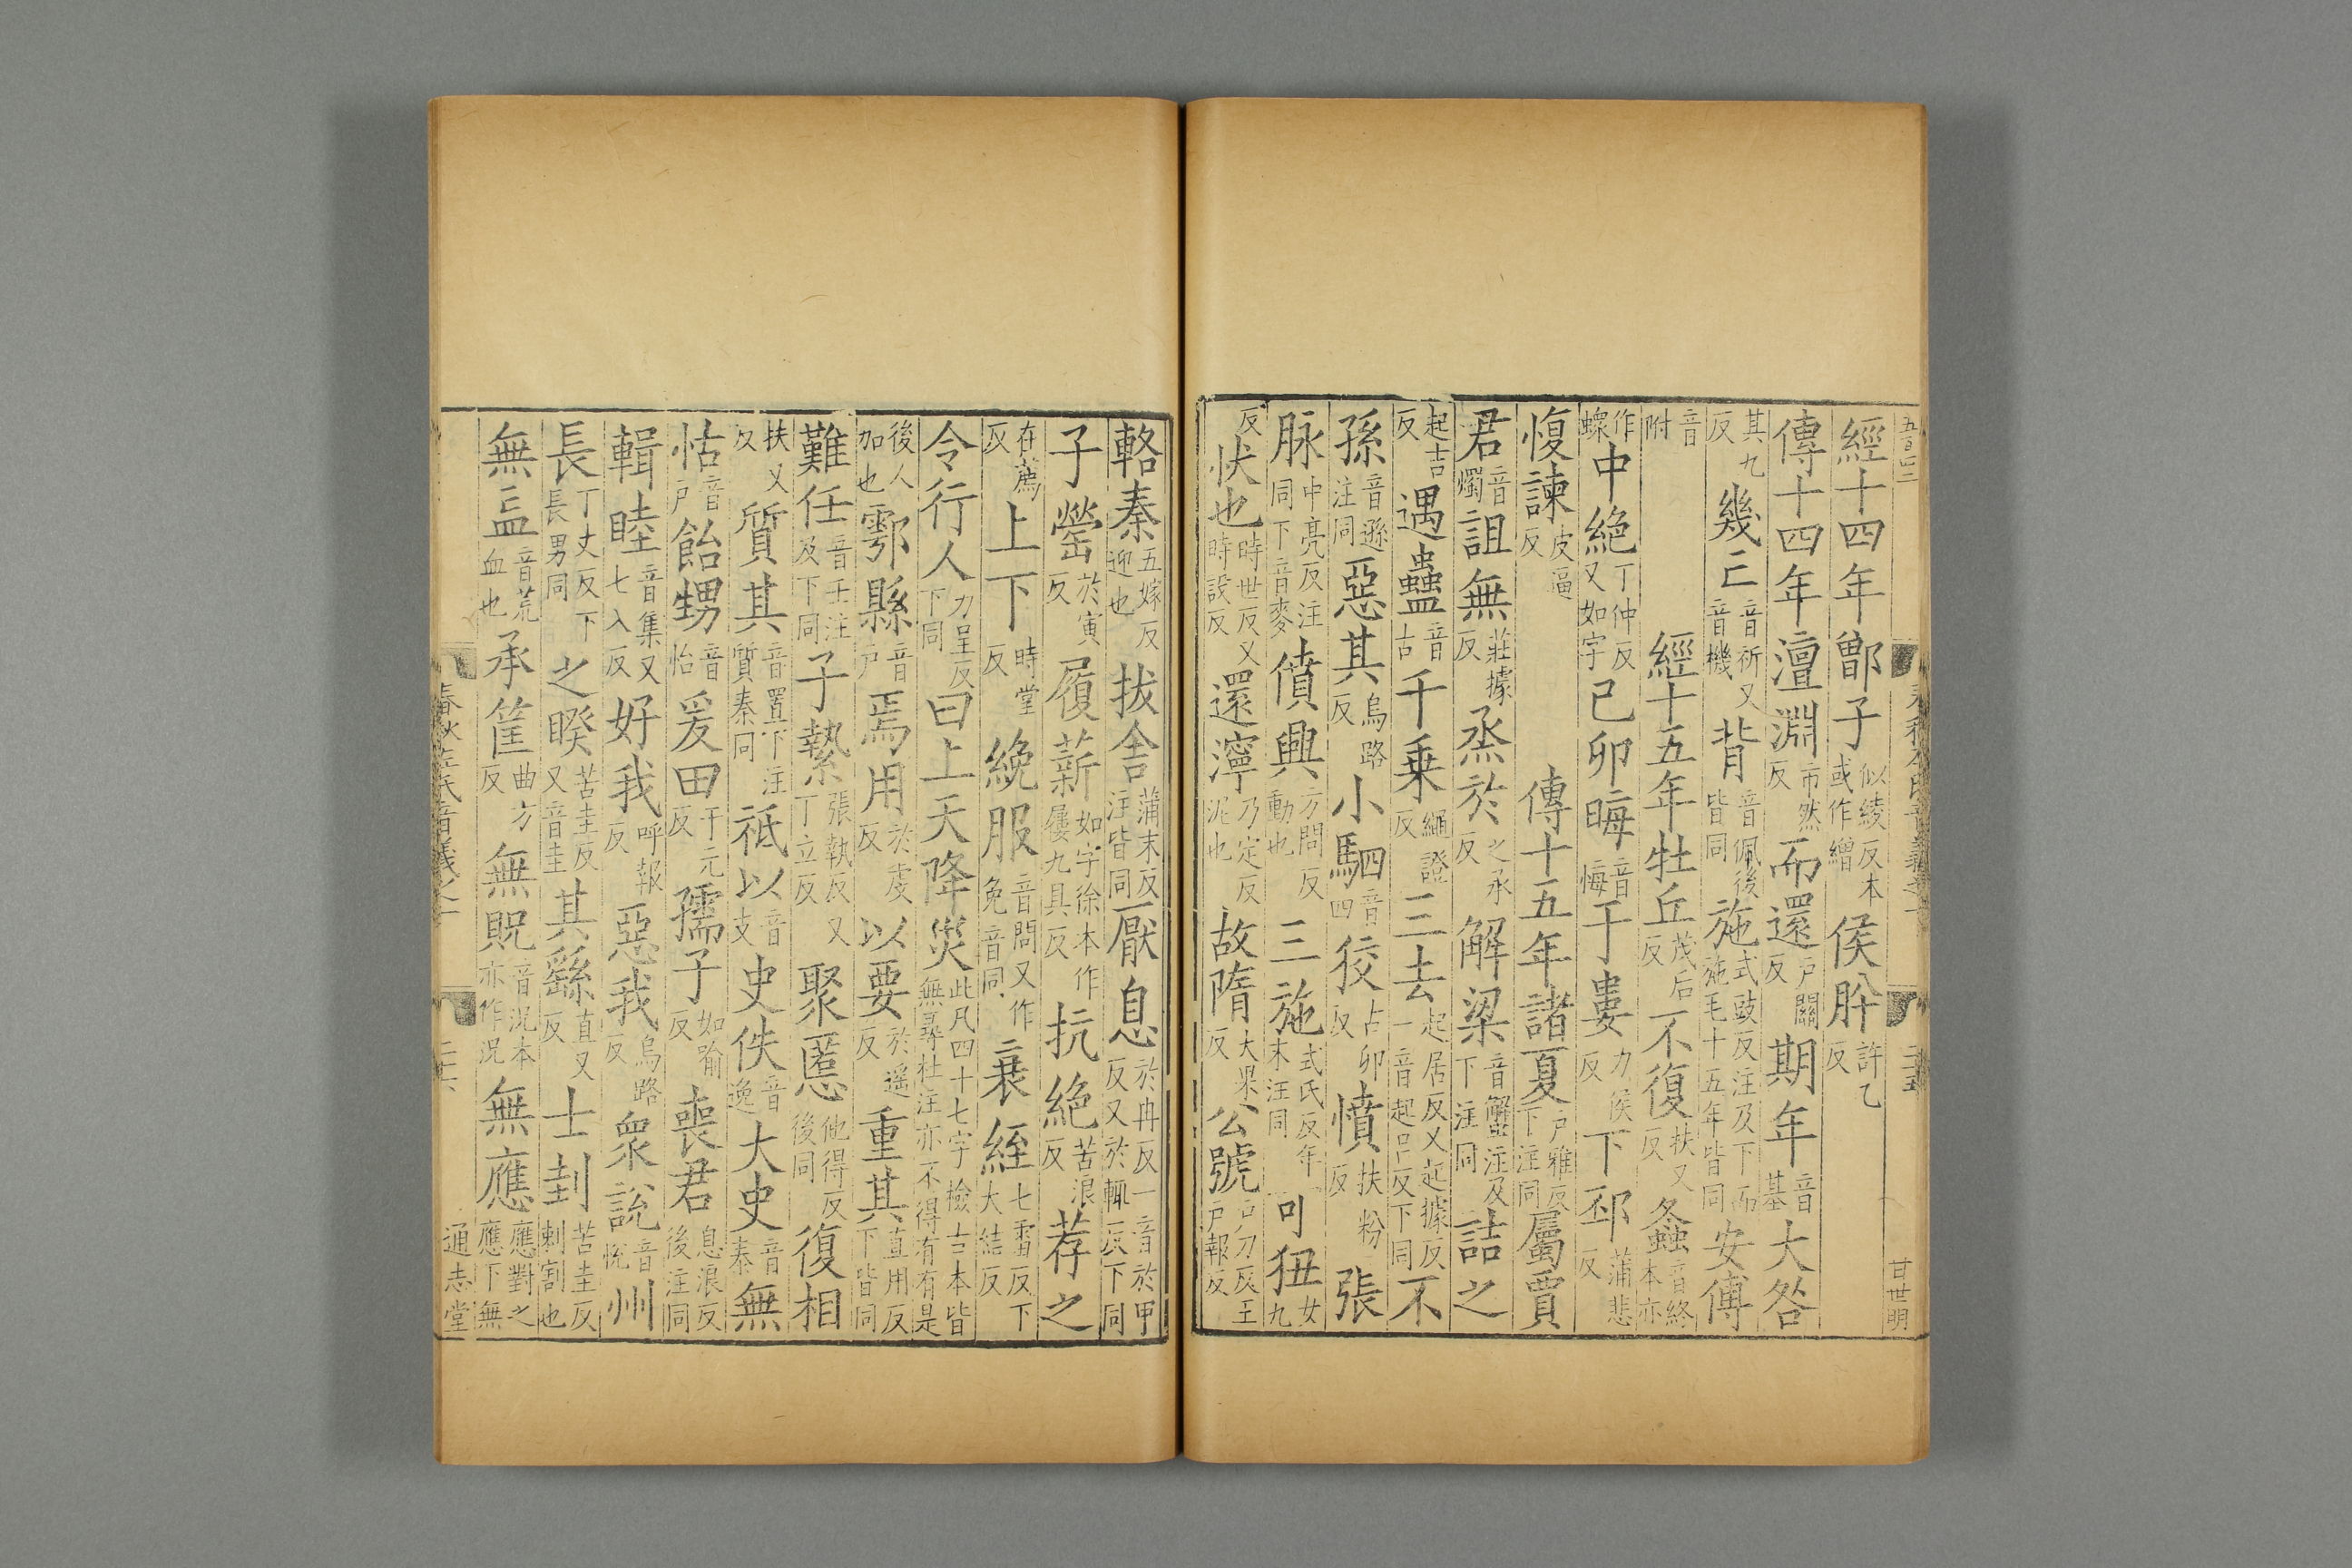 經十四年鄫子似綾反本或作繒侯肸許乙反
傳十四年澶淵市然反而還戶關反期年音基大咎
其九反幾亡音祈又音機背音佩後皆同施式豉反注及下而施毛十五年皆同安傅
音附經十五年牡丘茂后反不復扶又反螽音終本亦
作䗥中絶丁仲反又如字己卯晦音悔于婁力侯反下邳蒲悲反
愎諫皮逼反傳十五年諸夏戶雅反下注同屬賈
君音燭詛無莊據反烝於之承反解梁音蟹注及下注同詰之
起吉反遇蠱音古千乗繩證反三去起居反又起據反一音起呂反下同不
孫音遜注同惡其烏路反小駟音四狡古卯反憤扶粉反張
脉中亮反注同下音麥僨興方問反動也三施式氏反年末注同可狃女九
反忕也時世反又時設反還濘乃定反泥也故隋大果反公號戶刀反王戶報反
輅秦五嫁反迎也拔舍蒲末反注皆同厭息於冉反一音於甲反又於輒反下同
子罃於寅反履薪如字徐本作屨九具反抗絶苦浪反荐之
在薦反上下時掌反絻服音問又作免音同衰絰七雷反下大結反
令行人力呈反下同曰上天降災此凡四十七字檢古本皆無尋杜注亦不得有有是
後人加也鄠縣音戶焉用於虔反以要於遥反重其直用反下皆同
難任音壬注及下同子縶張執反又丁立反聚慝他得反後同復相
扶又反質其音置下注質秦同祗以音支史佚音逸大史音泰無
怙音戶飴甥音怡爰田于元反孺子如喻反喪君息浪反後注同
輯睦音集又七入反好我呼報反惡我烏路反衆說音悅州
長丁丈反下長男同之睽苦圭反又音圭其繇直又反士刲苦圭反刺割也
無衁音荒血也承筐曲方反無貺音況本亦作況無應應對之應下無
春秋左氏音義之一
二十六
通志堂